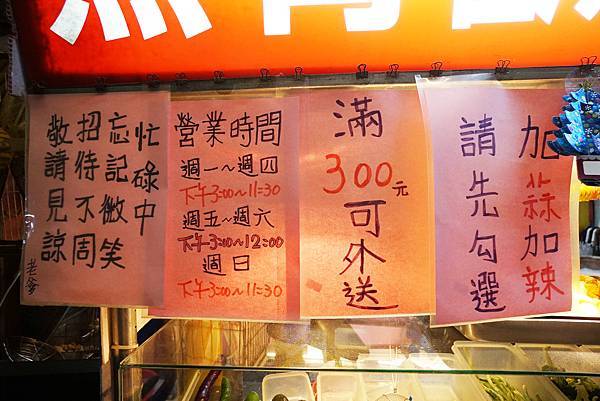 忙碌中
忘記微笑
招待不周
敬請見諒
老爹
營業時間
週一~週四
下午3:00~11:30
週五~週六
下午3:00~12:00
週日
下午3:00~11:30
滿
300元
可外送
加蒜加辣
請先勾選